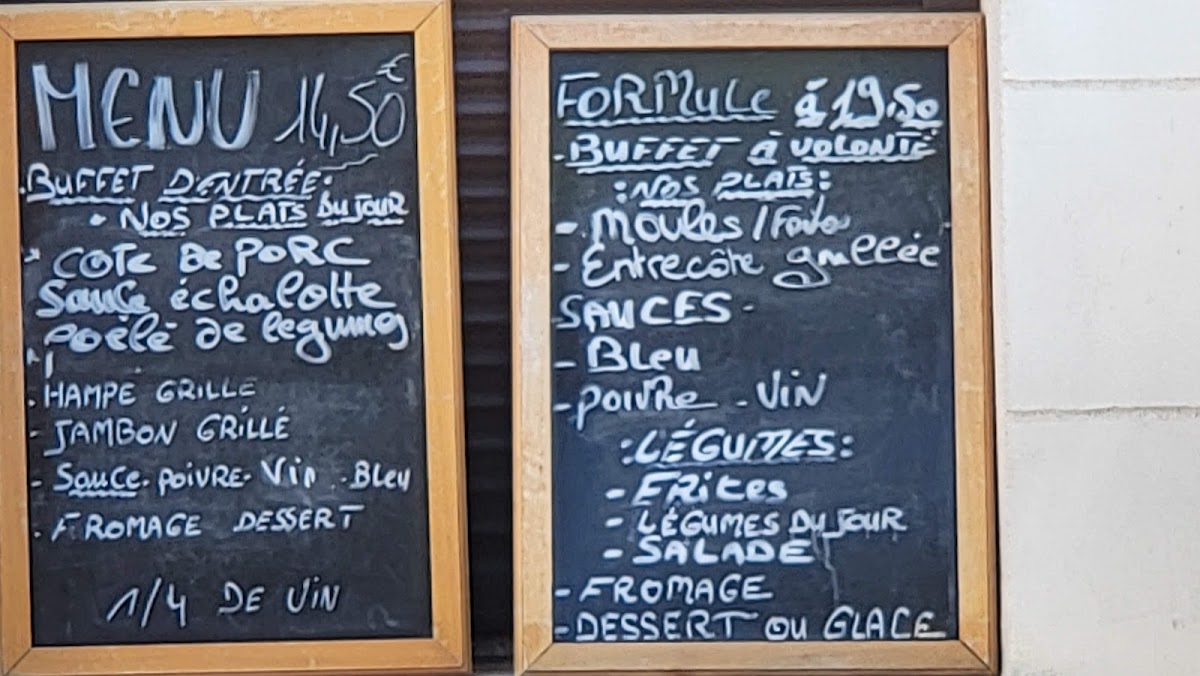 MENU 14,50€
.BUFFET D'ENTRÉE.
• NOS PLATS DU JOUR
COTE DE PORC
Sauce échalotte
Poélé de legums
. HAMPE GRILLE
- JAMBON GRILLÉ
- Sauce. POIVRE. Vin . Bleu
. FROMAGE DESSERT
1/4 DE VIN
FORMULE à 19,50
- BUFFET à VOLONTÉ
: NOS PLATS :
- Moules / 
- Entrecôte grillée
SAUCES -
- Bleu
- POIVRE - VIN
: LÉGUMES :
- FRites
- LÉGUMES DU JOUR
- SALADE
- FROMAGE
- DESSERT ou GLACE